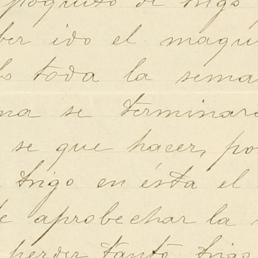 poquito de trigo
ber ido el maqui
lo toda la sema
na se terminar
se que hacer, po
trigo en ésta el
de aprobechar la
perder tanto trigo